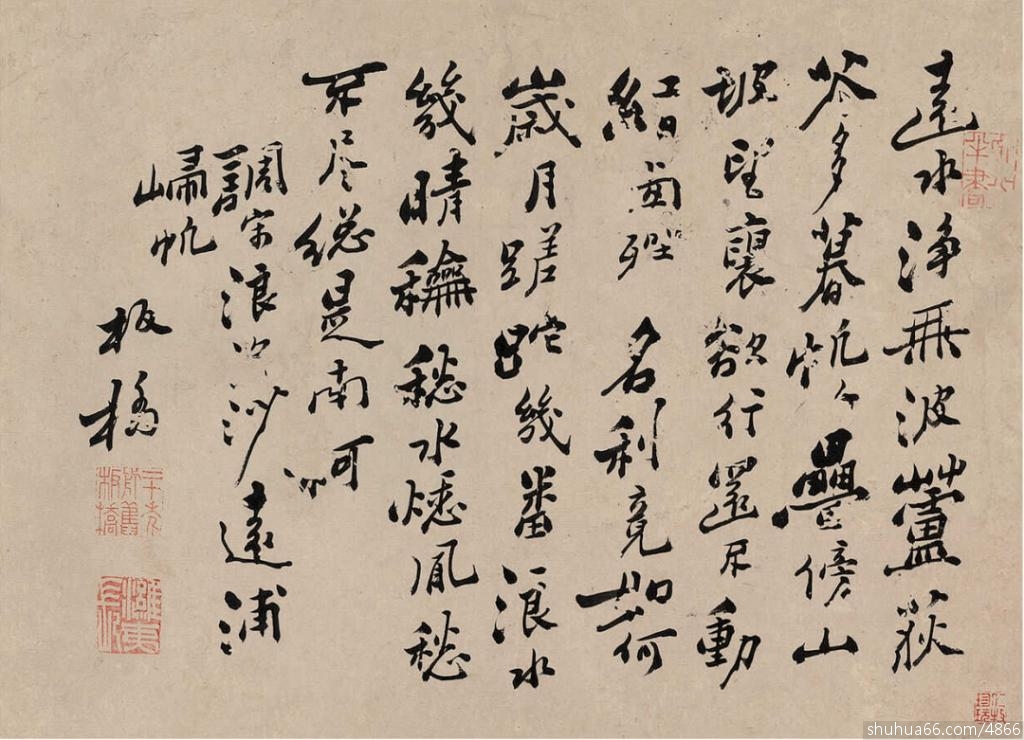 遠水淨無波蘆荻
花多暮帆千疊傍山
坡望裏欲行還不動
紅日西矬名利竟如何
歲月蹉跎幾番浪水
幾晴龢愁水愁風愁
不盡總是南柯
調寄浪淘沙遠浦
歸帆
板橋
shuhua66.com/4866